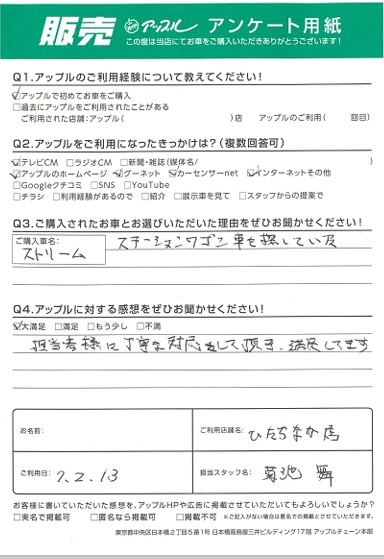 販売 アップル アンケート用紙
この度は当店にてお車をご購入いただきありがとうございます！
Q1.アップルのご利用経験について教えてください！
☑アップルで初めてお車をご購入
□過去にアップルをご利用されたことがある
ご利用された店舗：アップル（　　　）店　アップルのご利用（　　回目）
Q2.アップルをご利用になったきっかけは？（複数回答可）
☑テレビCM □ラジオCM □新聞・雑誌（媒体名/　　　）
☑アップルのホームページ ☑グーネット ☑カーセンサーnet ☑インターネットその他
□Googleクチコミ □SNS □YouTube
□チラシ □利用経験があるので □紹介 □展示車を見て □スタッフからの提案で
Q3.ご購入されたお車とお選びいただいた理由をぜひお聞かせください！
ご購入車名： ステーションワゴン車を探していた
ストリーム
Q4.アップルに対する感想をぜひお聞かせください！
☑大満足 □満足 □もう少し □不満
担当者様に丁寧な対応をして頂き、満足してます
お名前： ご利用店舗名： ひたちなか店
ご利用日： 7.2.13 担当スタッフ名： 菊池 舞
お客様に書いていただいた感想を、アップルHPや広告に掲載させていただいてもよろしいでしょうか？
□実名で掲載可 □匿名なら掲載可 □掲載不可 ※ご記入がない場合は匿名での掲載とさせていただきます。
東京都中央区日本橋2丁目5番1号 日本橋髙島屋三井ビルディング17階 アップルチェーン本部